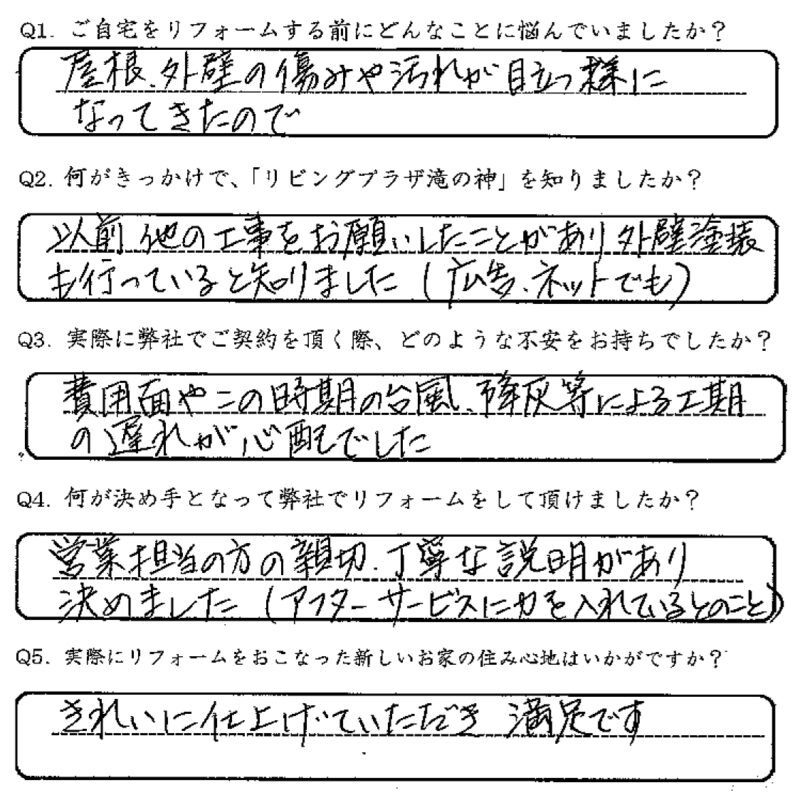 Q1. ご自宅をリフォームする前にどんなことに悩んでいましたか？
屋根、外壁の傷みや汚れが目立つ様に
なってきたので
Q2. 何がきっかけで、「リビングプラザ滝の神」を知りましたか？
以前他の工事をお願いしたことがあり外壁塗装
も行っていると知りました（広告、ネットでも）
Q3. 実際に弊社でご契約を頂く際、どのような不安をお持ちでしたか？
費用面やこの時期の台風、降灰等による工期
の遅れが心配でした
Q4. 何が決め手となって弊社でリフォームをして頂けましたか？
営業担当の方の親切、丁寧な説明があり
決めました（アフターサービスに力を入れているとのこと）
Q5. 実際にリフォームをおこなった新しいお家の住み心地はいかがですか？
きれいに仕上げていただき 満足です